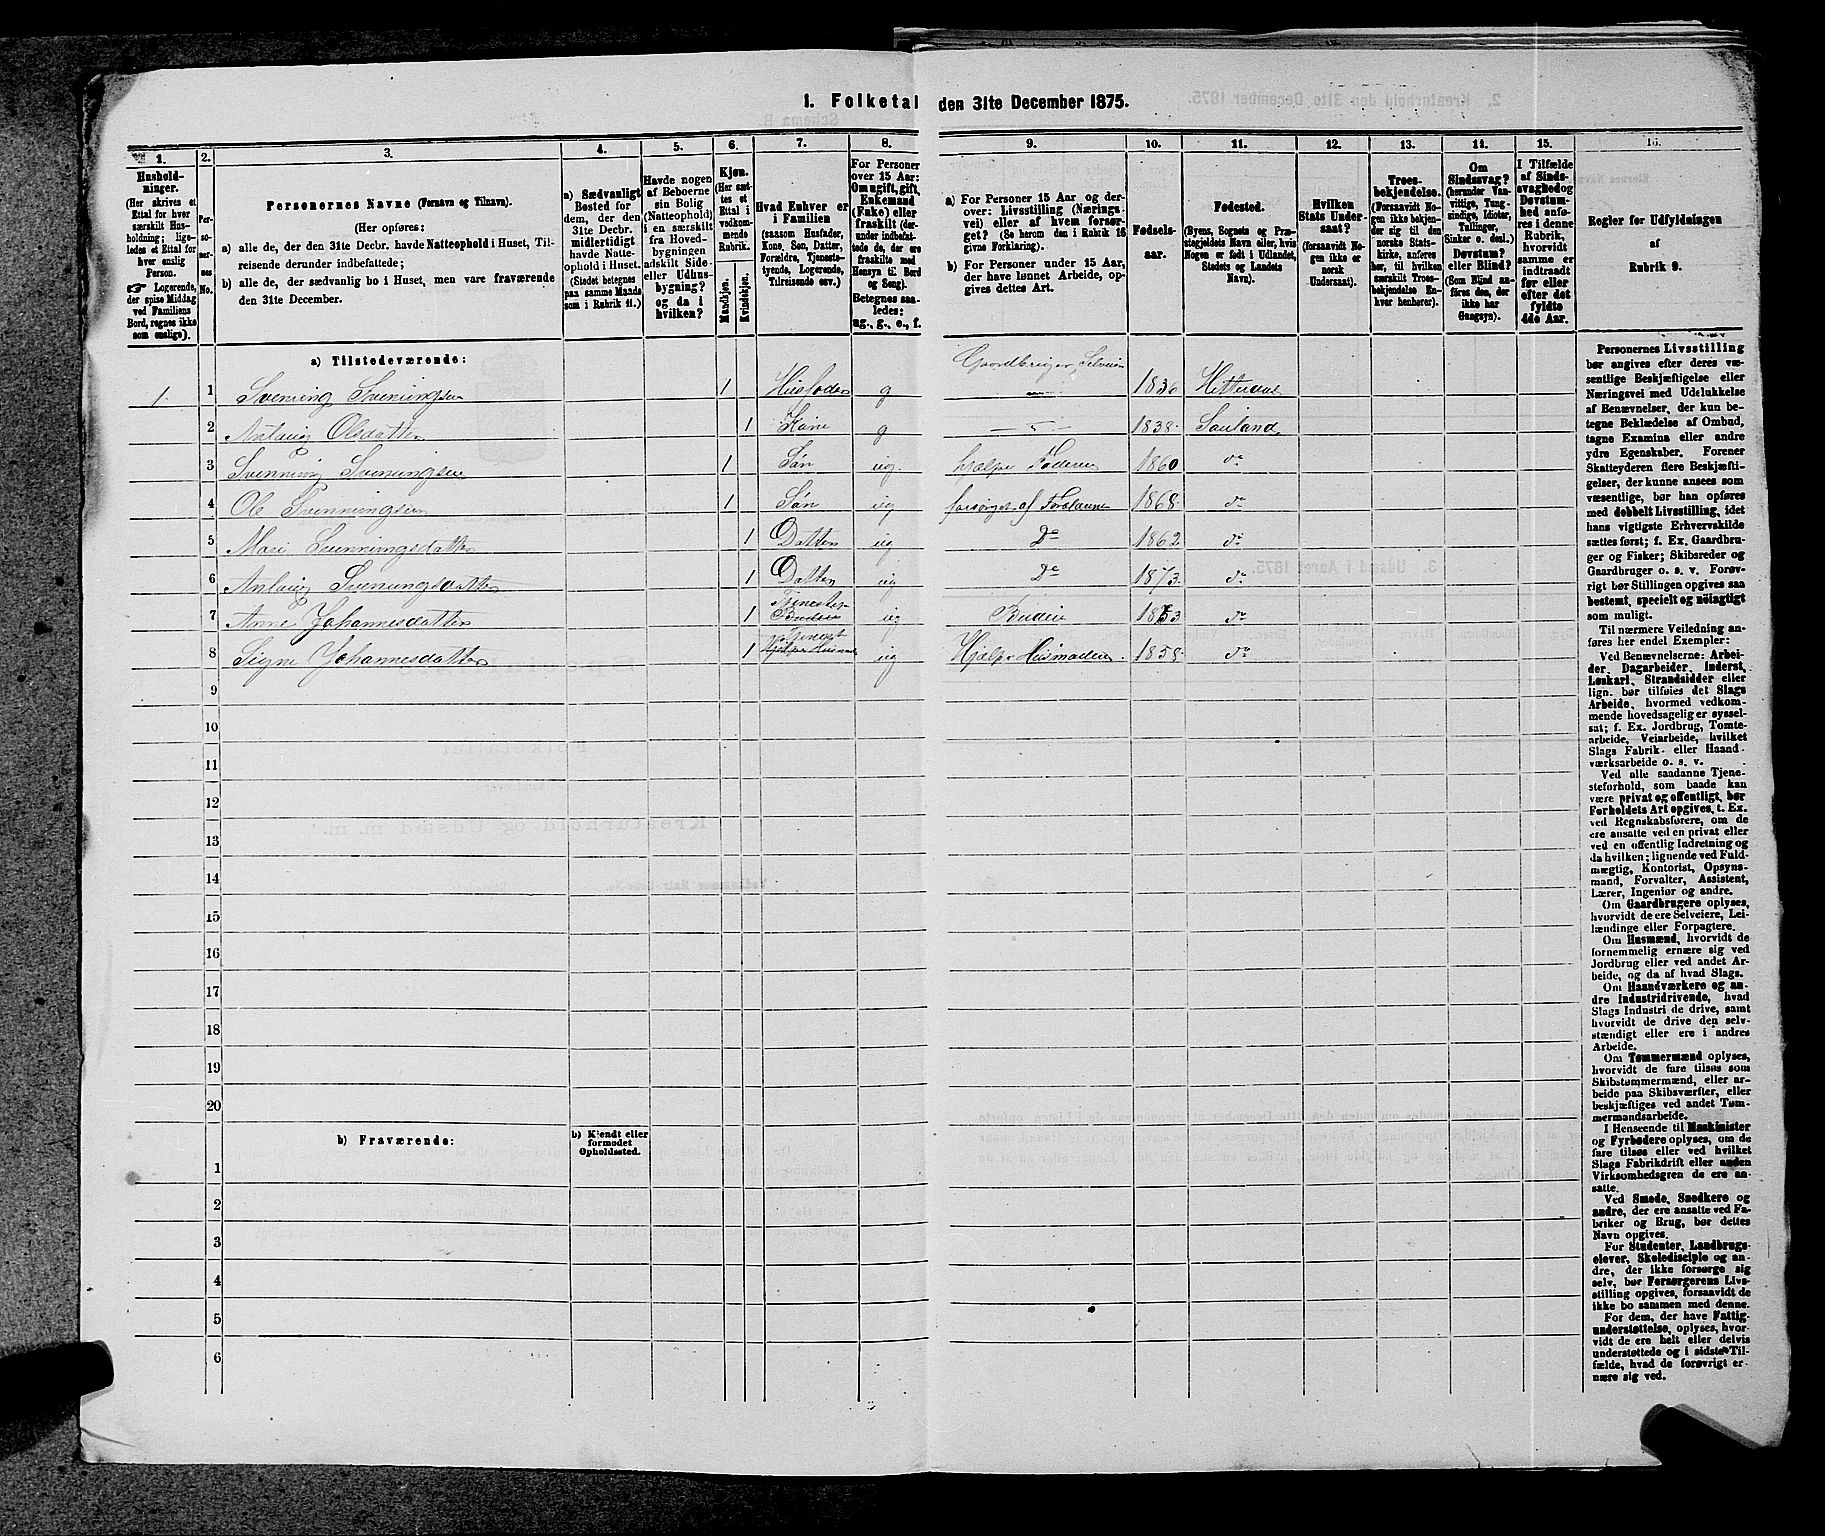 1. Folketal den 31te December 1875.
1.
Hushold-
ninger.
(Her skrives et
Ettal for hver
særskilt Hus-
holdning; lige-
ledes et Ettal for
hver enslig
Person.
☞ Logerende,
der spise Middag
ved Familiens
Bord, regnes ikke
som enslige).
2.
Per-
so-
ner-
nes
No.
3.
Personernes Navne (Fornavn og Tilnavn).
(Her opføres:
a) alle de, der den 31te Decbr. havde Natteophold i Huset, Til-
reisende derunder indbefattede;
b) alle de, der sædvanlig bo i Huset, men vare fraværende
den 31te December.
4.
a) Sædvanligt
Bosted for
dem, der den
31te Decbr.
midlertidigt
havde Natte-
ophold i Huset.
(Stedet betegnes
paa samme Maade
som i Rubrik 11.)
5.
Havde nogen
af Beboerne
sin Bolig
(Natteophold)
i en særskilt
fra Hoved-
bygningen
adskilt Side-
eller Udhus-
bygning?
og da i
hvilken?
6.
Kjøn.
(Her sæt-
tes et
Ettal i
vedkom-
mende
Rubrik.
Mandkjøn.
Kvindekjøn.
7.
Hvad Enhver er
i Familien
(saasom Husfader,
Kone, Søn, Datter,
Forældre, Tjeneste-
tyende, Logerende,
Tilreisende osv.)
8.
For Personer
over 15 Aar:
Om ugift, gift,
Enkemand
(Enke) eller
fraskilt (der-
under indbefat-
tede de, der ere
fraskilte med
Hensyn til Bord
og Seng).
Betegnes saa-
ledes:
ug., g., e., f.
9.
a) For Personer 15 Aar og der-
over: Livsstilling (Nærings-
vei) eller af hvem forsør-
get? (Se herom den i Rubrik 16
givne Forklaring).
b) For Personer under 15 Aar,
der have lønnet Arbeide, op-
gives dettes Art.
10.
Fødsels-
aar.
11.
Fødested.
(Byens, Sognets og Præ-
stegjeldets Navn eller, hvis
Nogen er født i Udlandet,
Stedets og Landets
Navn).
12.
Hvilken
Stats Under-
saat?
(forsaavidt No-
gen ikke er
norsk
Undersaat).
13.
Troes-
bekjendelse.
(Forsaavidt No-
gen ikke bekjen-
der sig til den
norske Stats-
kirke, anføres
her, til hvilken
særskilt Troes-
bekjendelse En-
hver henhører).
14.
Om
Sindssvag?
(herunder Van-
vittige, Tung-
sindige, Idioter,
Tullinger,
Sinker o. desl.)
Døvstum?
eller Blind?
(Som Blind an-
føres den, der
ikke har
Gangsyn).
15.
I Tilfælde
af Sinds-
svaghed og
Døvstum-
hed anfø-
res i denne
Rubrik,
hvorvidt
samme er
indtraadt
før eller
efter det
fyldte
4de Aar.
16.
Regler for Udfyldningen
af
Rubrik 9.
a) Tilstedeværende:
Gaardbruger, Selveier
1. 1 Svenning Svenningsen 1 Husfader g 1836 Hitterdal
2 Anlaug Olsdatter 1 Kone g 1838 Sauland
3 Svenning Svenningsen 1 Søn ug. hjælper Faderen 1860 do
4 Ole Svenningsen 1 Søn ug forsørget af Forældrene 1868 do
5 Mari Svenningsdatter 1 Datter ug Do 1862 do
6 Anlaug Svenningsdatter 1 Datter ug Do 1873 do
7 Anne Johannesdatter 1 Tjenestep. Budeie ug Budeie 1853 do
8 Signe Johannesdatter 1 Tjenest Hjelper Husmod ug Hjælper Husmoderen 1858 do
9
10
11
12
13
14
15
16
17
18
19
20
b) Fraværende:
b) Kjendt eller
formodet
Opholdssted.
1
2
3
4
5
6
Personernes Livsstilling
bør angives efter deres væ-
sentlige Beskjæftigelse eller
Næringsvei med Udelukkelse
af Benævnelser, der kun be-
tegne Beklædelse af Ombud,
tagne Examina eller andre
ydre Egenskaber. Forener
Skatteyderen flere Beskjæfti-
gelser, der kunne ansees som
væsentlige, bør han opføres
med dobbelt Livsstilling, idet
hans vigtigste Erhvervskilde
sættes først; f. Ex. Gaardbru-
ger og Fisker; Skibsreder og
Gaardbruger o. s. v. Forøv-
rigt bør Stillingen opgives saa
bestemt, specielt og nøiagtigt
som muligt.
Til nærmere Veiledning an-
føres her endel Exempler:
Ved Benævnelserne: Arbei-
der, Dagarbeider, Inderst,
Løskarl, Strandsidder eller
lign. bør tilføies det Slags
Arbeide, hvormed vedkom-
mende hovedsagelig er syssel-
sat; f. Ex. Jordbrug, Tomte-
arbeide, Veiarbeide, hvilket
Slags Fabrik- eller Haand-
værksarbeide o. s. v.
Ved alle saadanne Tjene-
steforhold, som baade kan
være privat og offentligt, bør
Forholdets Art opgives, t. Ex.
ved Regnskabsførere, om de
ere ansatte ved en privat eller
ved en offentlig Indretning og
da hvilken; lignende ved Fuld-
mægtig, Kontorist, Opsyns-
mand, Forvalter, Assistent,
Lærer, Ingeniør og andre.
Om Gaardbrugere oplyses,
hvorvidt de ere Selveiere, Lei-
lændinge eller Forpagtere.
Om Husmænd, hvorvidt de
fornemmelig ernære sig ved
Jordbrug eller ved andet Ar-
beide, og da af hvad Slags.
Om Haandværkere og an-
dre Industridrivende, hvad
Slags Industri de drive, samt
hvorvidt de drive den selv-
stændigt eller ere i andres
Arbeide.
Om Tømmermænd oplyses,
hvorvidt de fare tilsøs som
Skibstømmermænd, eller ar-
beide paa Skibsværfter, eller
beskjæftiges ved andet Tøm-
mermandsarbeide.
I Henseende til Maskinister
og Fyrbødere oplyses, om de
fare tilsøs eller ved hvilket
Slags Fabrikdrift eller anden
Virksomhedsgren de ere an-
satte.
Ved Smede, Snedkere og
andre, der ere ansatte ved Fa-
briker og Brug, bør dettes
Navn opgives.
For Studenter, Landbrugs-
elever, Skoledisciple og an-
dre, der ikke forsørge sig
selv, bør Forsørgerens Livs-
stilling opgives, forsaavidt de
ikke bo sammen med denne.
For dem, der have Fattig-
understøttelse, oplyses, hvor-
vidt de ere helt eller delvis
understøttede og i sidste Til-
fælde, hvad de forøvrigt er-
nære sig ved.